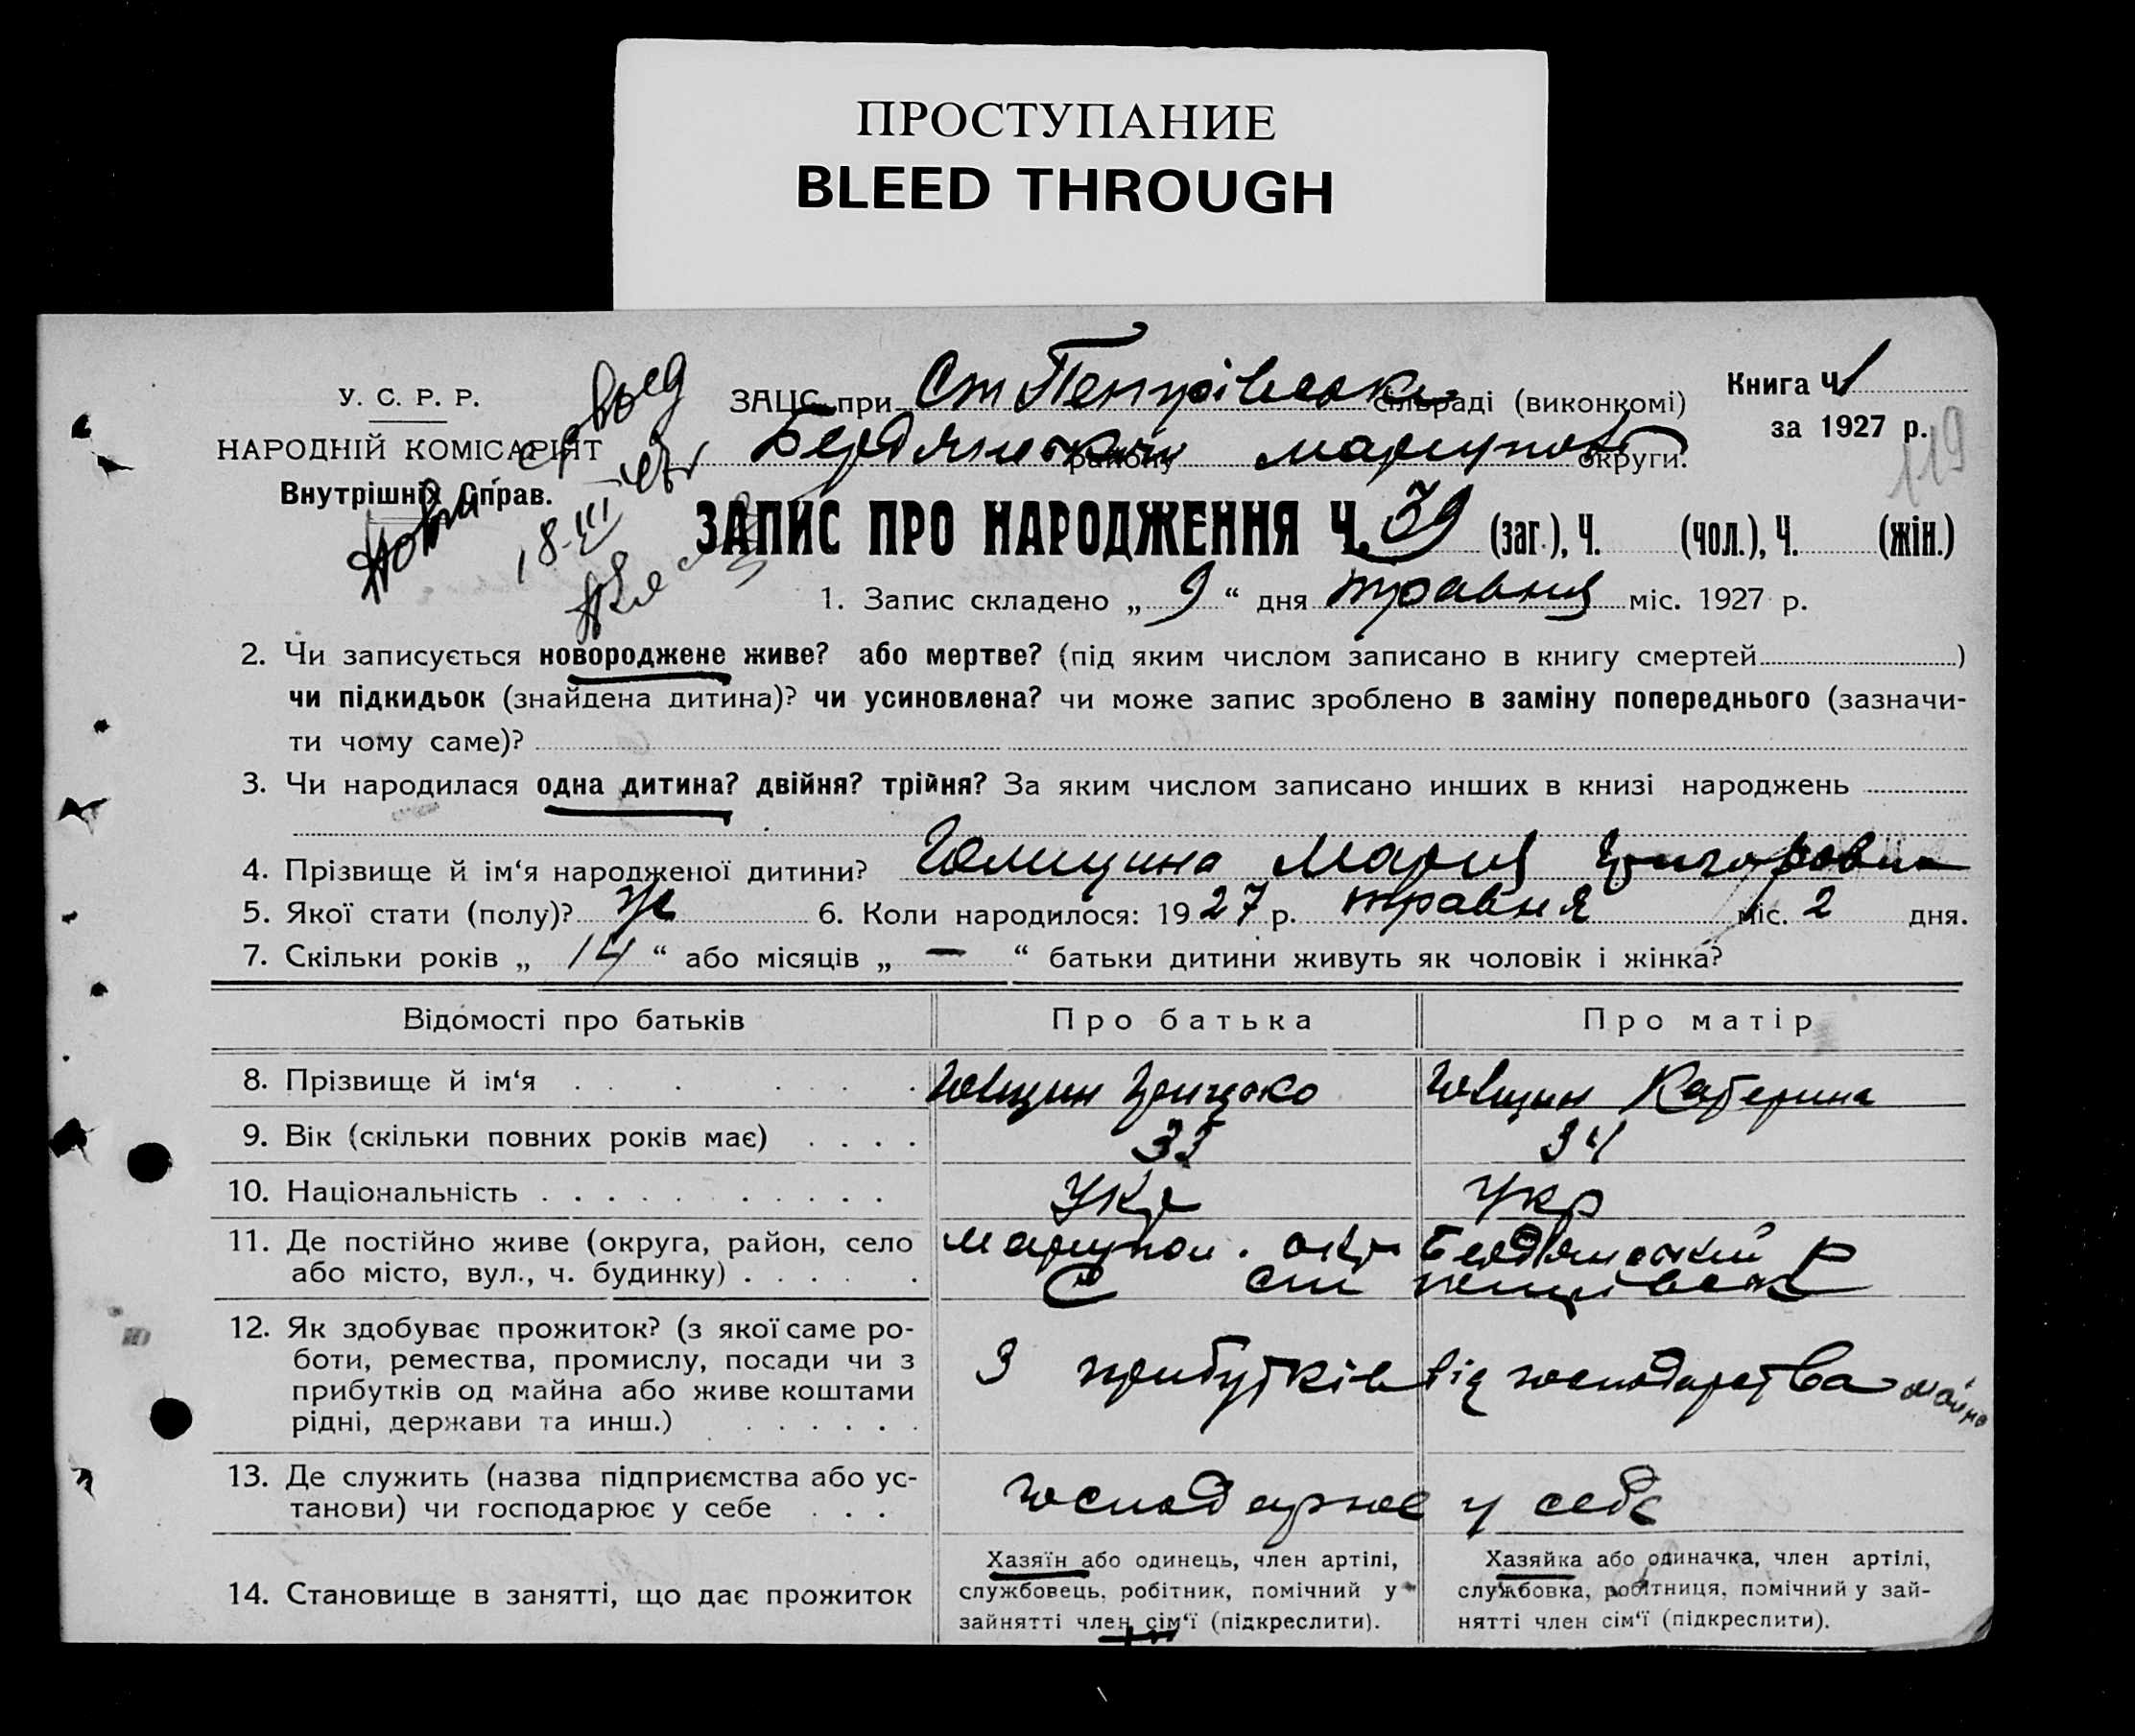 ПРОСТУПАНИЕ
BLEED THROUGH
У. С. Р. Р.
НАРОДНІЙ КОМІСАРІЯТ
Внутрішніх Справ.
18-III
ЗАЦС при Ст Петрівській сільраді (виконкомі)
Бердянський району маріупол округи.
Книга Ч. 1
за 1927 р.
119
ЗАПИС ПРО НАРОДЖЕННЯ Ч. 39 (заг.), Ч. (чол.), Ч. (жін.)
1. Запис складено „ 9 “ дня травня міс. 1927 р.
2. Чи записується новороджене живе? або мертве? (під яким числом записано в книгу смертей )
чи підкидьок (знайдена дитина)? чи усиновлена? чи може запис зроблено в заміну попереднього (зазначи-
ти чому саме)?
3. Чи народилася одна дитина? двійня? трійня? За яким числом записано инших в книзі народжень
4. Прізвище й ім‘я народженої дитини? Мария
5. Якої стати (полу)? ж 6. Коли народилося: 1927 р. травня міс. 2 дня.
7. Скільки років „ 14 “ або місяців „ — “ батьки дитини живуть як чоловік і жінка?
Відомості про батьків Про батька Про матір
8. Прізвище й ім‘я Грицько Катерина
9. Вік (скільки повних років має) 35 34
10. Національність Укр Укр
11. Де постійно живе (округа, район, село Маріупол. окр Бердянський р
або місто, вул., ч. будинку) С ст петрівськ
12. Як здобуває прожиток? (з якої саме ро-
боти, ремества, промислу, посади чи з З прибутків від господарства
прибутків од майна або живе коштами
рідні, держави та инш.)
13. Де служить (назва підприємства або ус-
танови) чи господарює у себе господарює у себе
14. Становище в занятті, що дає прожиток
Хазяїн або одинець, член артілі,
службовець, робітник, помічний у
зайнятті член сім‘ї (підкреслити).
Хазяйка або одиначка, член артілі,
службовка, робітниця, помічний у зай-
нятті член сім‘ї (підкреслити).